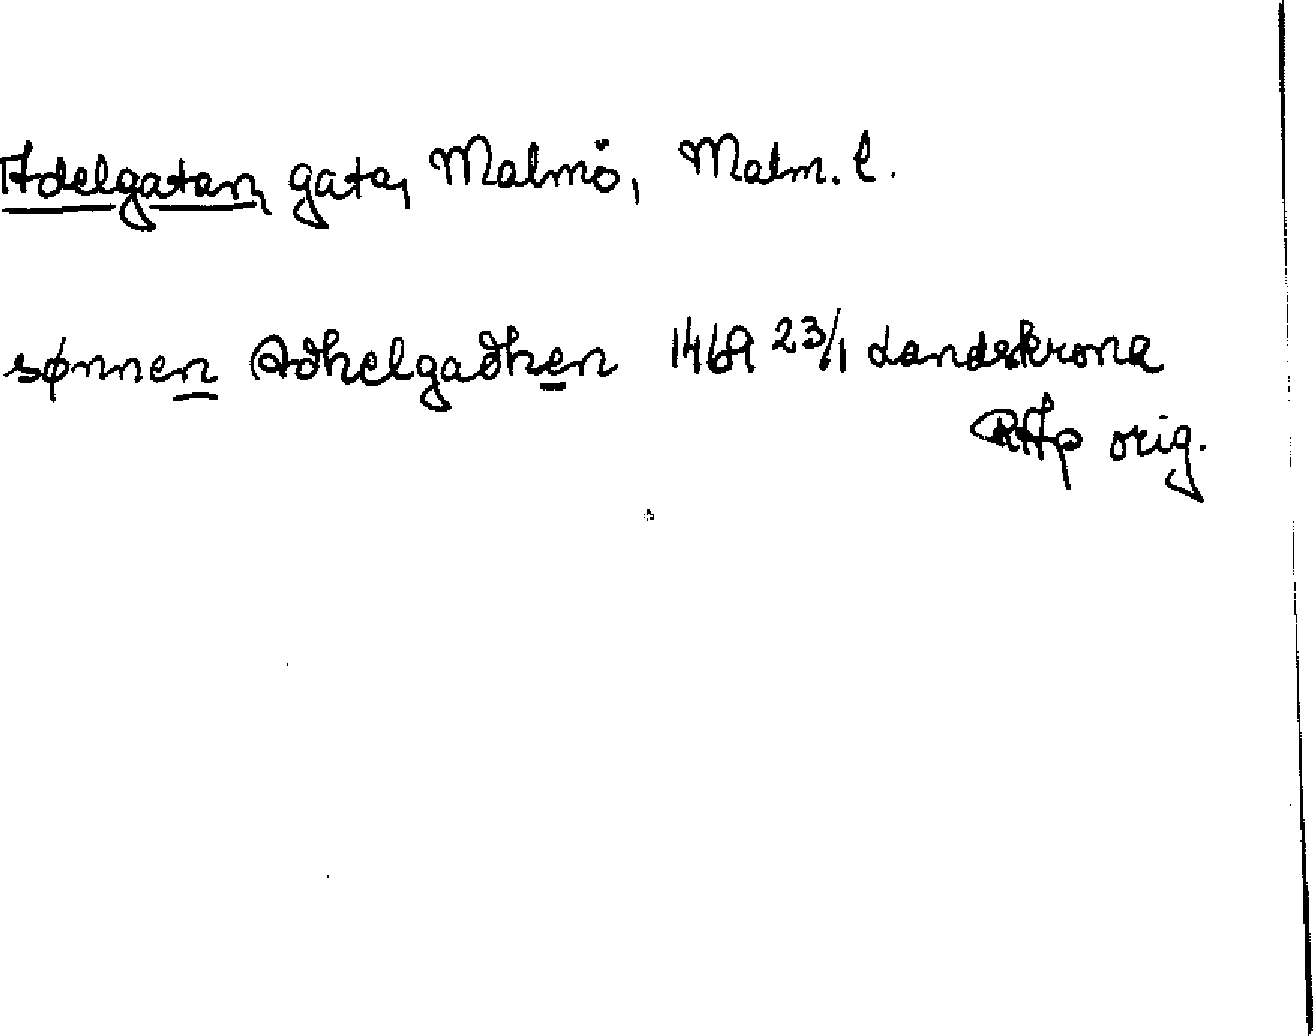 Adelgatan, gata, Malmö, Malm. l.
sønnen Adhelgadhen 1469 23/1 Landskrona
RAp orig.